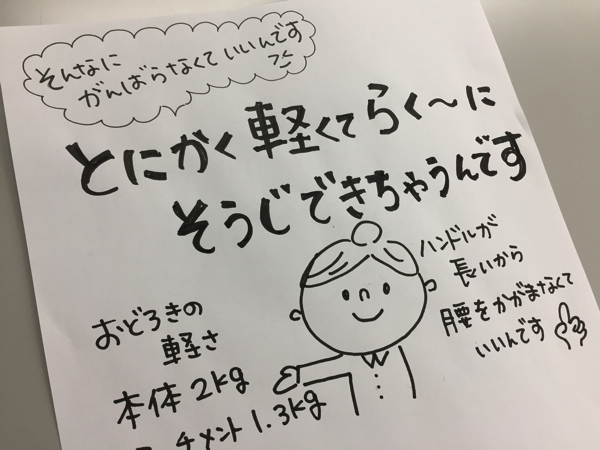 そんなに
がんばらなくていいんです
とにかく軽くてらく〜に
そうじできちゃうんです
ハンドルが
長いから
腰をかがまなくて
いいんです
おどろきの
軽さ
本体2kg
チメント1.3kg